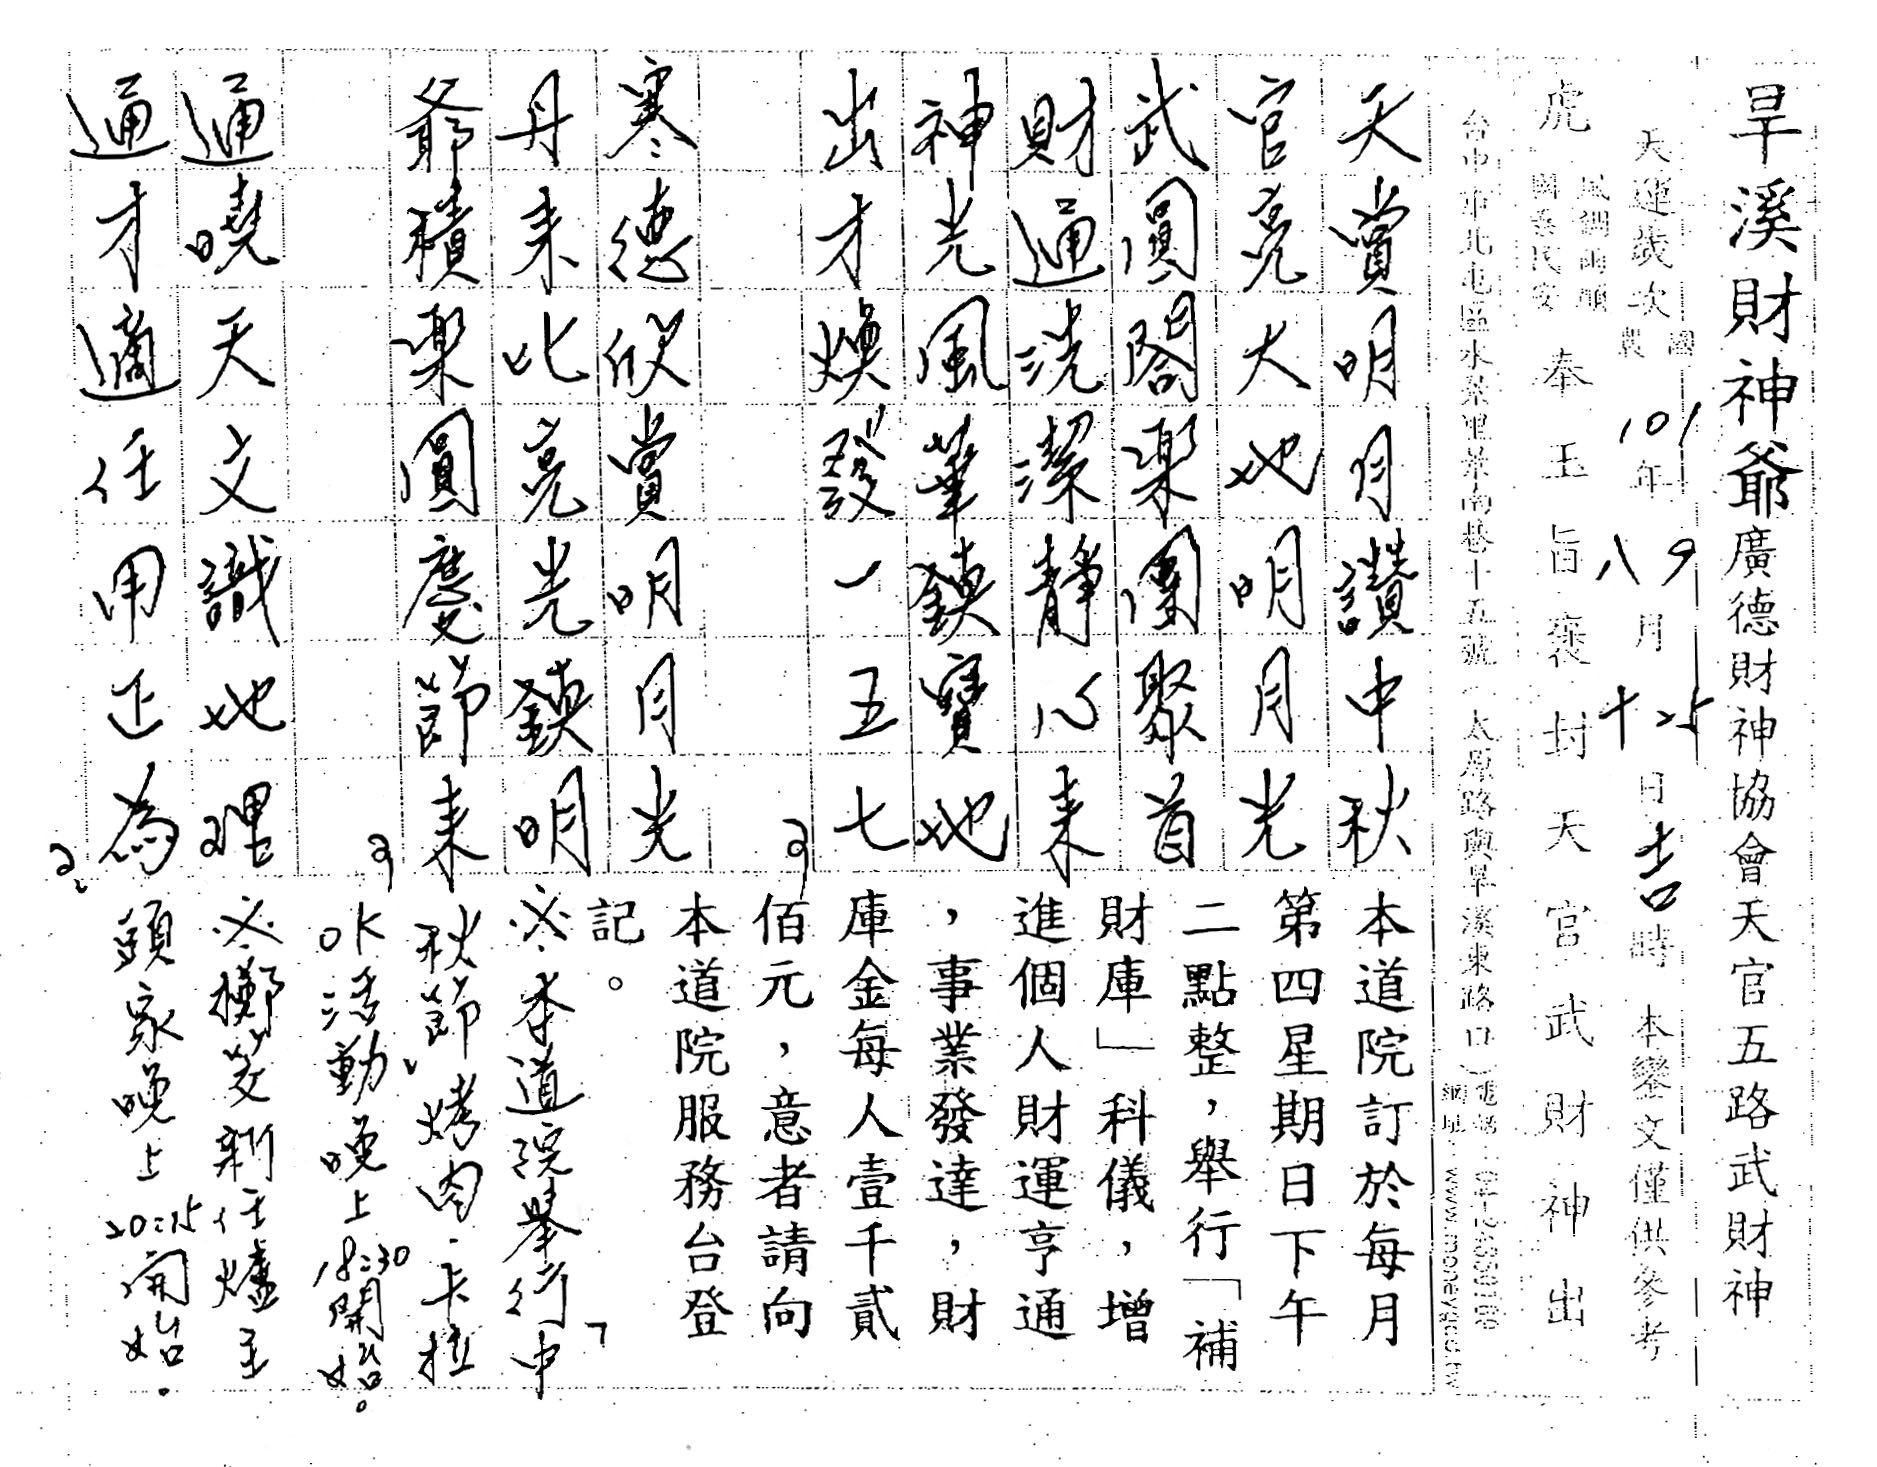 旱溪財神爺廣德財神協會天官五路武財神
天運歲次
國
農
101年
9
八月
25
十日吉時
本鑾文僅供參考
虎
風調雨順
國泰民安
奉玉旨褒封天官武財神出
台中市北屯區水景里景南巷十五號(太原路與旱溪東路口)
電話
網址:www.moneygod.tw
天賞明月讚中秋
官亮大地明月光
武圓閤聚團聚首
財通洗潔靜心來
神光風華鏡寶地
出才煥發一五七
寒德欣賞明月光
丹來比亮光鏡明
爺積聚圓慶節來
通曉天文識地理
通才適任用正為
本道院訂於每月
第四星期日下午
二點整,舉行「補
財庫」科儀,增
進個人財運亨通
,事業發達,財
庫金每人壹千貳
佰元,意者請向
本道院服務台登
記。
本道院舉行「中
秋節」烤肉、卡拉
OK活動晚上18:30開始。
擲筊新任爐主
頭家晚上20:15開始。